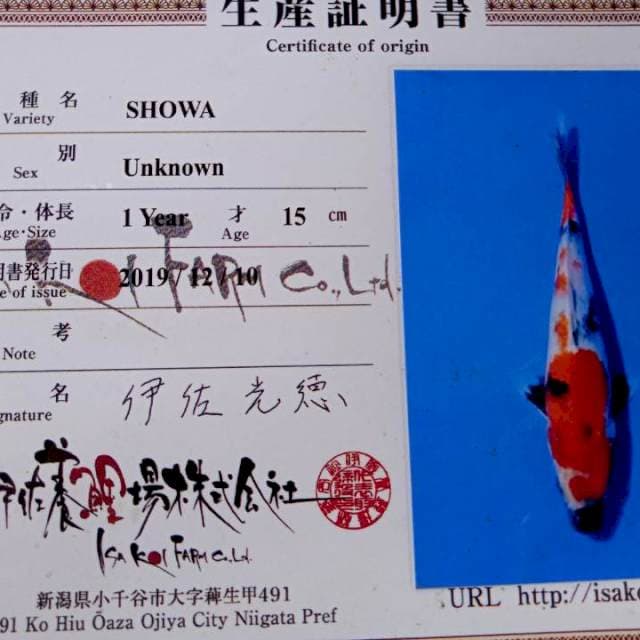 生産証明書
Certificate of origin
種名
Variety
SHOWA
別
Sex
Unknown
令・体長
Age・Size
1 Year 才 15 cm
Age
明書発行日
e of issue
2019 / 12 / 10
Koi Farm Co., Ltd.
考
Note
名
gnature
伊佐光徳
伊佐養鯉場株式会社
Isa Koi Farm Co., Ltd.
新潟県小千谷市大字薭生甲491
91 Ko Hiu Ōaza Ojiya City Niigata Pref
URL http://isako